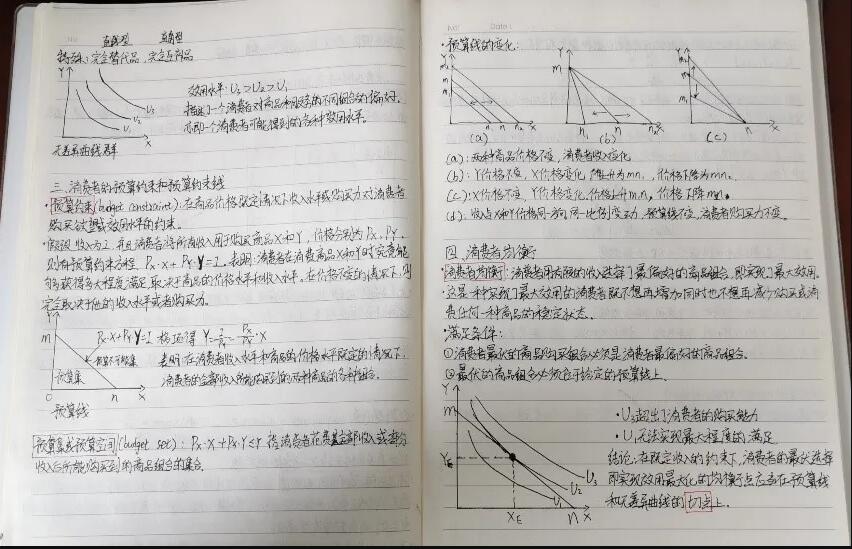 直线型 直角型
特殊: 完全替代品, 完全互补品
Y
U₃
U₂
U₁
X
无差异曲线群
效用水平: U₃>U₂>U₁
描述了一个消费者对商品和服务的不同组合的偏好.
亦即一个消费者可能得到的各种效用水平.
三. 消费者的预算约束和预算约束线
·预算约束(budget constraint): 在商品价格既定情况下收入水平或购买力对消费者
购买欲望或效用水平的约束.
·假设收入为I, 并且消费者将所有收入用于购买商品X和Y, 价格分别为Px, PY,
则有预算约束方程 Px·X+PY·Y=I. 表明: 消费者在消费商品X和Y时究竟能
够获得多大程度满足取决于商品的价格水平和收入水平. 在价格不变的情况下, 则
完全取决于他的收入水平或者购买力.
Y
m
预算集
O n X
预算线
Px·X+PY·Y=I 移项得 Y=
表明: 在消费者收入水平和商品的价格水平既定的情况下,
消费者的全部收入所能购买到的两种商品的各种组合.
预算集或预算空间(budget set): Px·X+PY·Y≤I 指消费者花费其全部收入或部分
收入后所能购买到的商品组合的集合.
No: Date:
·预算线的变化:
Y Y Y
m m m
n₁ n n₂ X n₁ n n₂ X n X
(a) (b) (c)
(a): 两种商品价格不变, 消费者收入变化
(b): Y价格不变, X价格变化, 价格上升为mn₁, 价格下降为mn₂.
(c): X价格不变, Y价格变化. 价格上升m₁n, 价格下降m₂n.
(d): 收入I和X和Y价格同方向, 同一比例变动, 预算线不变, 消费者购买力不变.
四. 消费者均衡
·消费者均衡: 消费者用有限的收入选择了最偏好的商品组合, 即实现了最大效用.
·这是一种实现了最大效用的消费者既不想再增加同时也不想再减少购买或消
费任何一种商品的稳定状态.
·满足条件:
①消费者最优的商品购买组合必须是消费者最偏好的商品组合.
②最优的商品组合必须位于给定的预算线上.
Y
m
YE
U₃
U₂
U₁
XE n X
·U₃超出了消费者的购买能力
·U₁无法实现最大程度的满足
结论: 在既定收入的约束下, 消费者的最优选择
即实现效用最大化的均衡点应当在预算线
和无差异曲线的切点上.